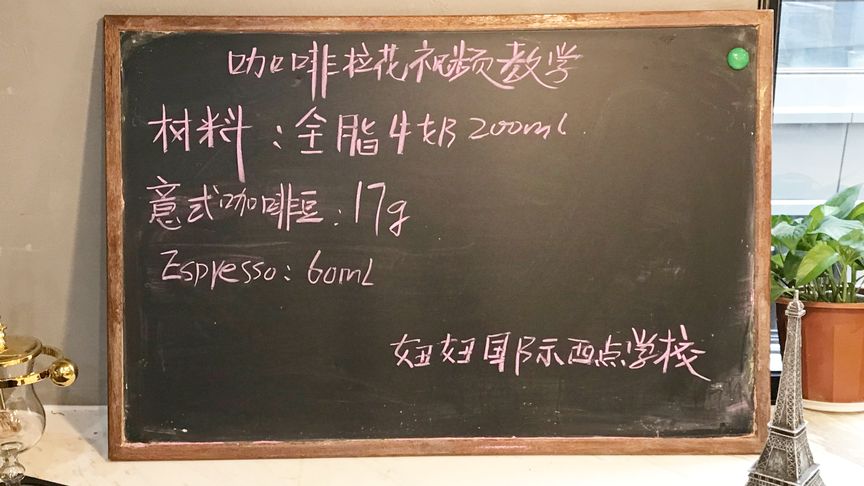 咖啡拉花视频教学
材料:全脂牛奶200ml
意式咖啡豆:17g
Espresso:60mL
妞妞国际西点学校